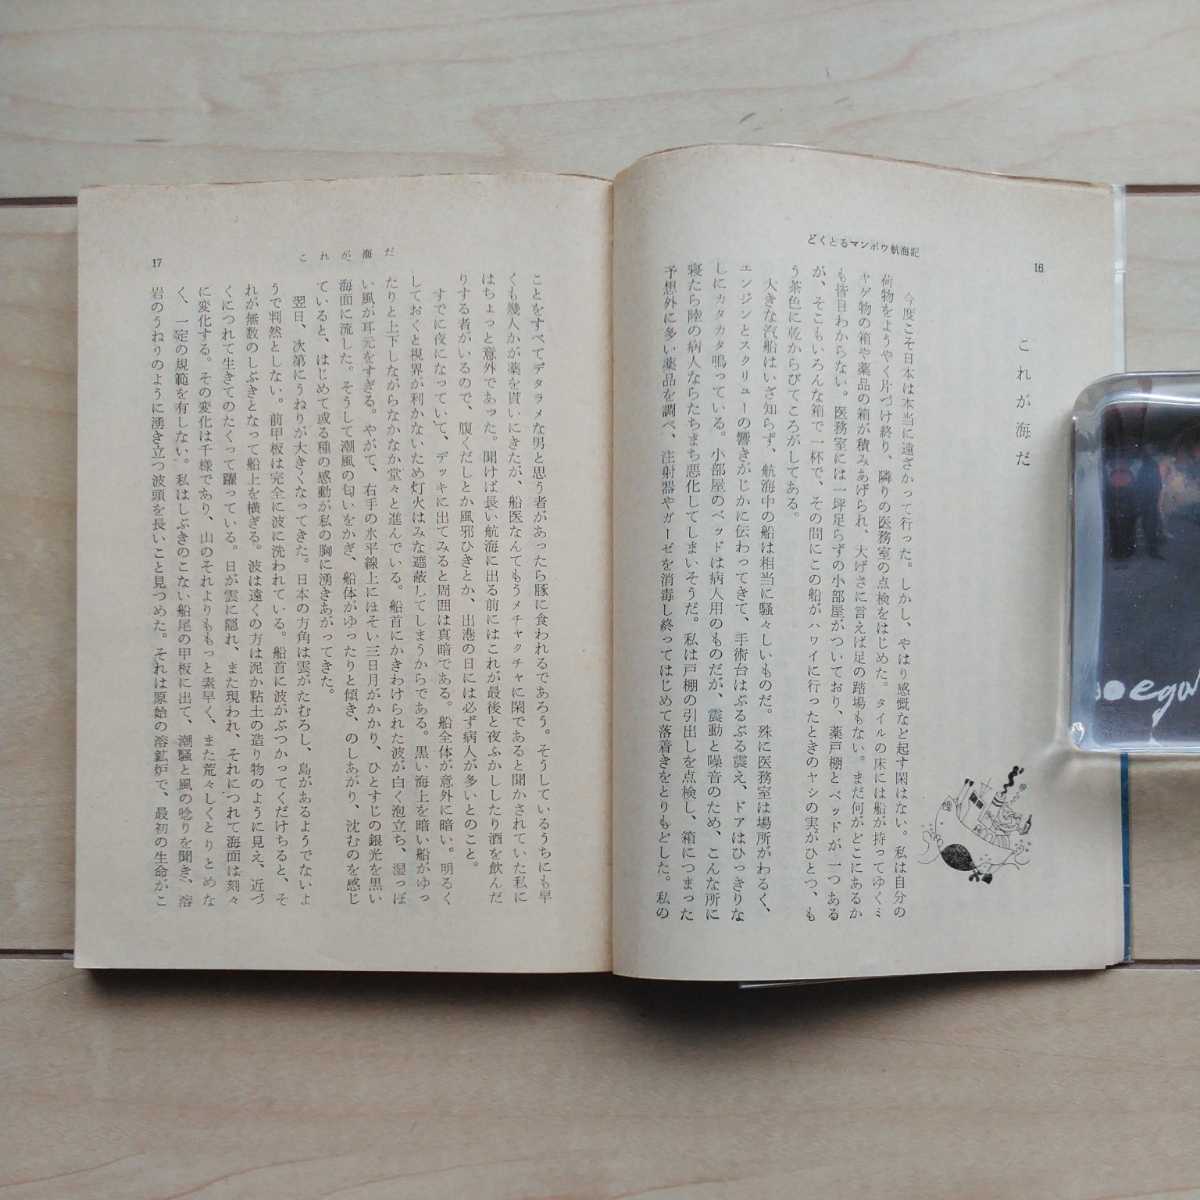 16
どくとるマンボウ航海記
これが海だ
今度こそ日本は本当に遠ざかって行った。しかし、やはり感慨など起す閑はない。私は自分の
荷物をようやく片づけ終り、隣りの医務室の点検をはじめた。タイルの床には船が持ってゆくミ
ヤゲ物の箱や薬品の箱が積みあげられ、大げさに言えば足の踏場もない。まだ何がどこにあるか
も皆目わからない。医務室には一坪足らずの小部屋がついており、薬戸棚とベッドが一つある
が、そこもいろんな箱で一杯で、その間にこの船がハワイに行ったときのヤシの実がひとつ、も
う茶色に乾からびてころがしてある。
大きな汽船はいざ知らず、航海中の船は相当に騒々しいものだ。殊に医務室は場所がわるく、
エンジンとスクリューの響きがじかに伝わってきて、手術台はぶるぶる震え、ドアはひっきりな
しにカタカタ鳴っている。小部屋のベッドは病人用のものだが、震動と噪音のため、こんな所に
寝たら陸の病人ならたちまち悪化してしまいそうだ。私は戸棚の引出しを点検し、箱につまった
予想外に多い薬品を調べ、注射器やガーゼを消毒し終ってはじめて落着きをとりもどした。私の
これが海だ
17
ことをすべてデタラメな男と思う者があったら豚に食われるであろう。そうしているうちにも早
くも幾人かが薬を貰いにきたが、船医なんてもうメチャクチャに閑であると聞かされていた私に
はちょっと意外であった。聞けば長い航海に出る前にはこれが最後と夜ふかししたり酒を飲んだ
りする者がいるので、腹くだしとか風邪ひきとか、出港の日には必ず病人が多いとのこと。
すでに夜になっていて、デッキに出てみると周囲は真暗である。船全体が意外に暗い。明るく
しておくと視界が利かないため灯火はみな遮蔽してしまうからである。黒い海上を暗い船がゆっ
たりと上下しながらなかなか堂々と進んでいる。船首にかきわけられた波が白く泡立ち、湿っぽ
い風が耳元をすぎる。やがて、右手の水平線上にほそい三日月がかかり、ひとすじの銀光を黒い
海面に流した。そうして潮風の匂いをかぎ、船体がゆったりと傾き、のしあがり、沈むのを感じ
ていると、はじめて或る種の感動が私の胸に湧きあがってきた。
翌日、次第にうねりが大きくなってきた。日本の方角は雲がたむろし、島があるようでないよ
うで判然としない。前甲板は完全に波に洗われている。船首に波がぶつかってくだけちると、そ
れが無数のしぶきとなって船上を横ぎる。波は遠くの方は泥か粘土の造り物のように見え、近づ
くにつれて生きてのたくって躍っている。日が雲に隠れ、また現われ、それにつれて海面は刻々
に変化する。その変化は千様であり、山のそれよりももっと素早く、また荒々しくとりとめな
く、一定の規範を有しない。私はしぶきのこない船尾の甲板に出て、潮騒と風の唸りを聞き、溶
岩のうねりのように湧き立つ波頭を長いこと見つめた。それは原始の溶鉱炉で、最初の生命がこ